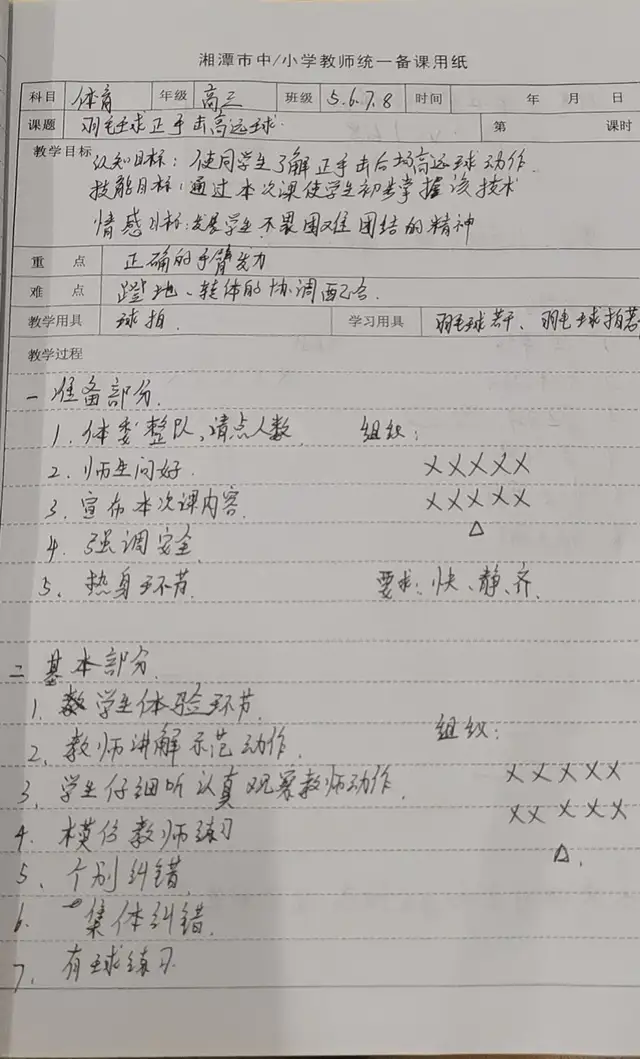 湘潭市中/小学教师统一备课用纸
科目 体育 年级 高三 班级 5.6.7.8 时间 年 月 日
课题 羽毛球正手击高远球. 第 课时
教学目标 认知目标：使同学生了解正手击后场高远球动作.
技能目标：通过本次课使学生初步掌握该技术
情感目标：发展学生不畏困难团结的精神
重点 正确的手臂发力
难点 蹬地、转体的协调配合.
教学用具 球拍. 学习用具 羽毛球若干、羽毛球拍若
教学过程
一 准备部分.
1. 体委整队、清点人数. 组织：
2. 师生问好. XXXXX
3. 宣布本次课内容. XXXXX
△
4. 强调安全
5、热身环节. 要求：快、静、齐.
二 基本部分.
1. 学生体验环节.
2、教师讲解示范动作. 组织：
3、学生仔细听认真观察教师动作. XXXXX
4. 模仿教师练习 XXXXX
5、个别纠错. △.
6. 集体纠错.
7、有球练习.